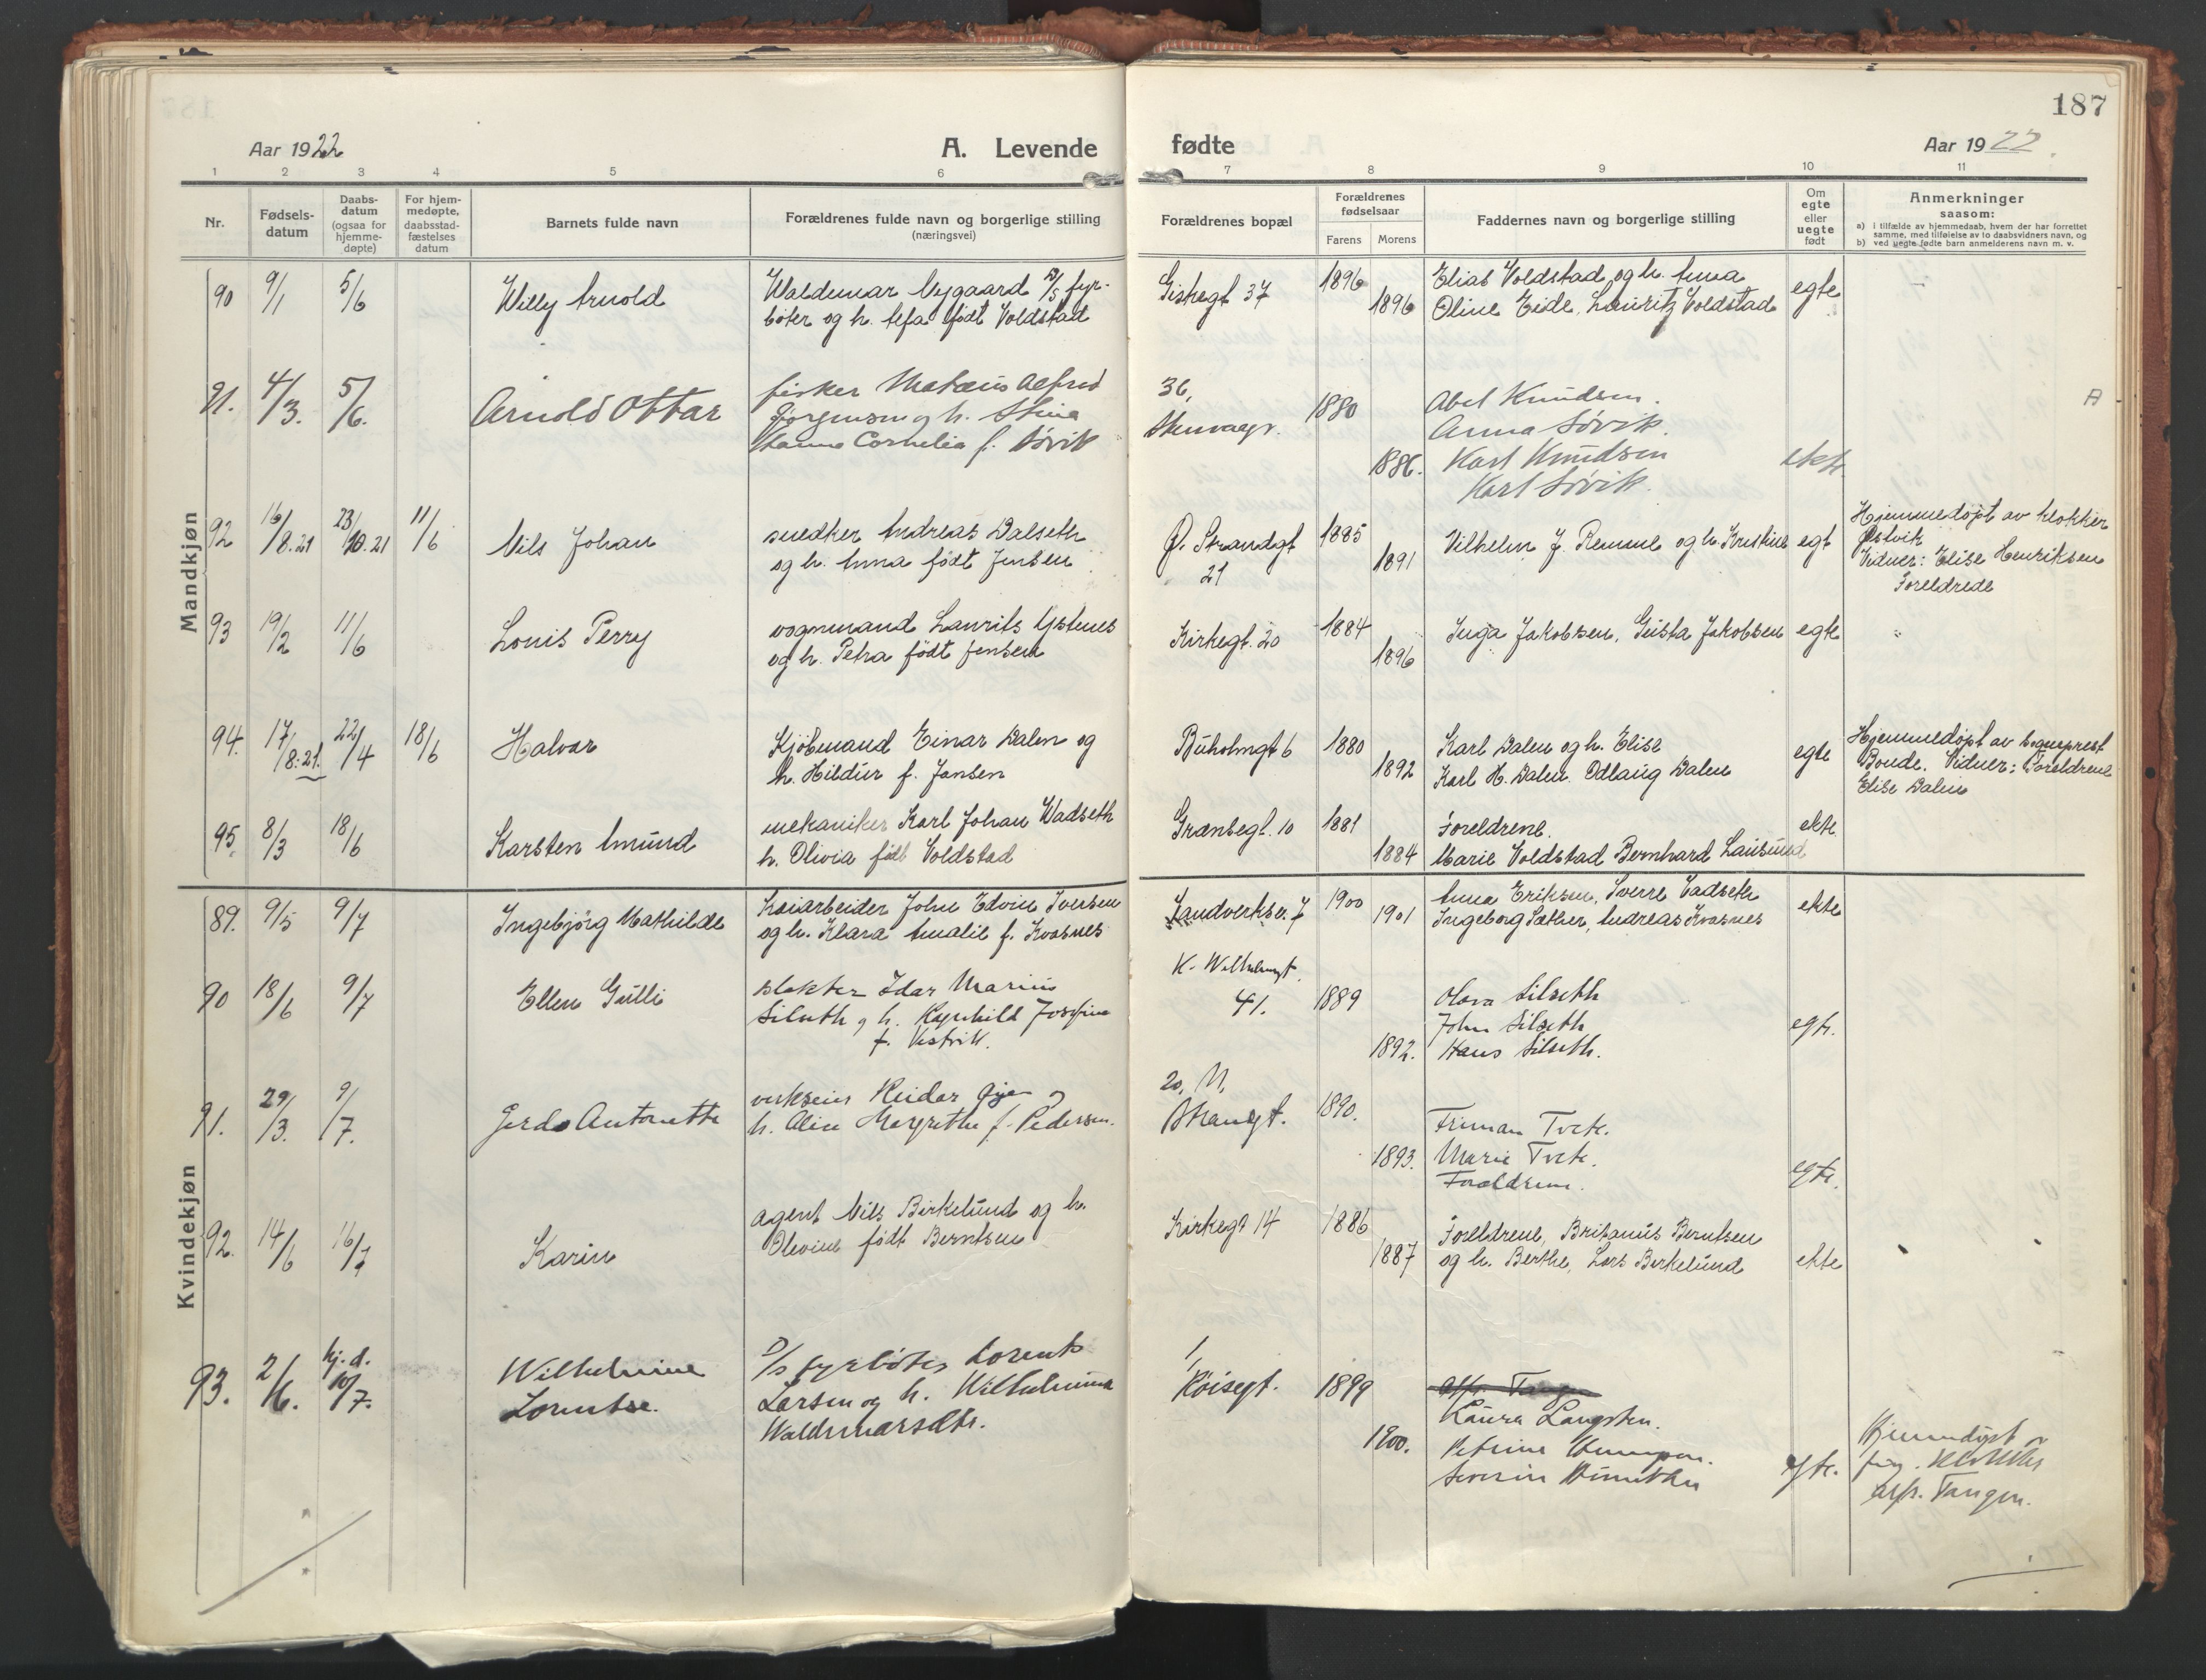 187
Aar 1922
A. Levende
fødte
Aar 1922
1 2 3 4 5 6 7 8 9 10 11
Nr.
Fødsels-
datum
Daabs-
datum
(ogsaa for
hjemme-
døpte)
For hjem-
medøpte,
daabsstad-
fæstelses
datum
Barnets fulde navn
Forældrenes fulde navn og borgerlige stilling
(næringsvei)
Forældrenes bopæl
Forældrenes
fødselsaar
Farens Morens
Faddernes navn og borgerlige stilling
Om
egte
eller
uegte
født
Anmerkninger
saasom:
a) i tilfælde av hjemmedaab, hvem der har forrettet
samme, med tilføielse av to daabsvidners navn, og
b) ved uegte fødte barn anmelderens navn m. v.
Mandkjøn
90 9/1 5/6 Willy Arnold
Waldemar Nygaard D/S fyr-
bøter og h. født Voldstad
Giskegt 37 1896 1896
Elias Voldstad og h. Anna
Oline Eide, Lauritz Voldstad
egte
91. 4/3. 5/6. Arnold Ottar
fisker Mataus Alfred
Jørgensen og h. Stina
Hanna Cornelia f. Søvik
36,
1880 1886.
Abel Knudsen.
Anna Søvik.
Karl Knudsen
Karl Søvik.
ekte
A
92 16/8.21 23/10.21 11/6 Nils Johan
snedker Andreas Dalseth
og h. Anna født Jensen
Ø. Strandgt
21
1885 1891
Vilhelm J. Remme og h. Kristine
egt
Hjemmedøpt av klokker
Østvik
Vidner: Elise Henriksen
Foreldrede
93 19/2 11/6 Louis Perry
vognmand Laurits Ystenes
og h. Petra født Jensen
Kirkegt. 20 1884 1896
Inga Jakobsen, Gusta Jakobsen
egte
"
94. 17/8.21. 22/4 18/6 Halvar
Kjøbmand Einar Dalen og
h. Hildur f. Jansen
Buholmgt 6 1880 1892
Karl Dalen og h. Elise
Karl H. Dalen. Odlaug Dalen
egte
Hjemmedøpt av sogneprest
Bonde. Vidner: Foreldrene
Elise Dalen
95. 8/3 18/6 Karsten Amund
mekaniker Karl Johan Wadseth
h. Olivia født Voldstad
Grænsegt. 10 1881 1884
Foreldrene.
Marie Voldstad Bernhard Lausund
ekte
Kvindekjøn
89. 9/5 9/7 Ingebjørg Mathilde
Kaiarbeider John Edvin Iversen
og h. Klara Amalie f. Kvasnes
7 1900 1901
Anna Eriksen, Sverre Vadseth
Ingeborg Sæther, Andreas Kvasnes
ekte
90 18/6 9/7 Ellen Gulli
slakter Idar Marius
Silseth og h. Ragnhild Josefine
f. Vestvik.
K. Wilhelmsgt.
41. 1889 1892.
Olava Silseth
John Silseth
Hans Silseth.
egte.
91. 29/3. 9/7. Gerda Antonette
verkseier Reidar Gjea og
h. Aline Margrethe f. Pedersen.
20, N.
Strandgt. 1890. 1893.
Friman Tvete.
Marie Tvete.
Foreldrene.
egte.
92. 14/6 16/7 Karin
agent Nils Birkelund og h.
Olevine født Berntsen
Kirkegt 14 1886 1887
Foreldrene, Britanus Berntsen
og h. Berthe, Lars Birkelund
ekte
93. 2/6. hj. d. 10/7. Wilhelmine
Lorentse.
D/S fyrbøter Lorents
Larsen og h. Wilhelmina
Waldemarsdtr.
1,
Røisegt. 1899 1900.
Alfr. Tangen
Laura Langsten.
Petrine
Severin
egte.
Hjemmedøpt
Alfr. Tangen.